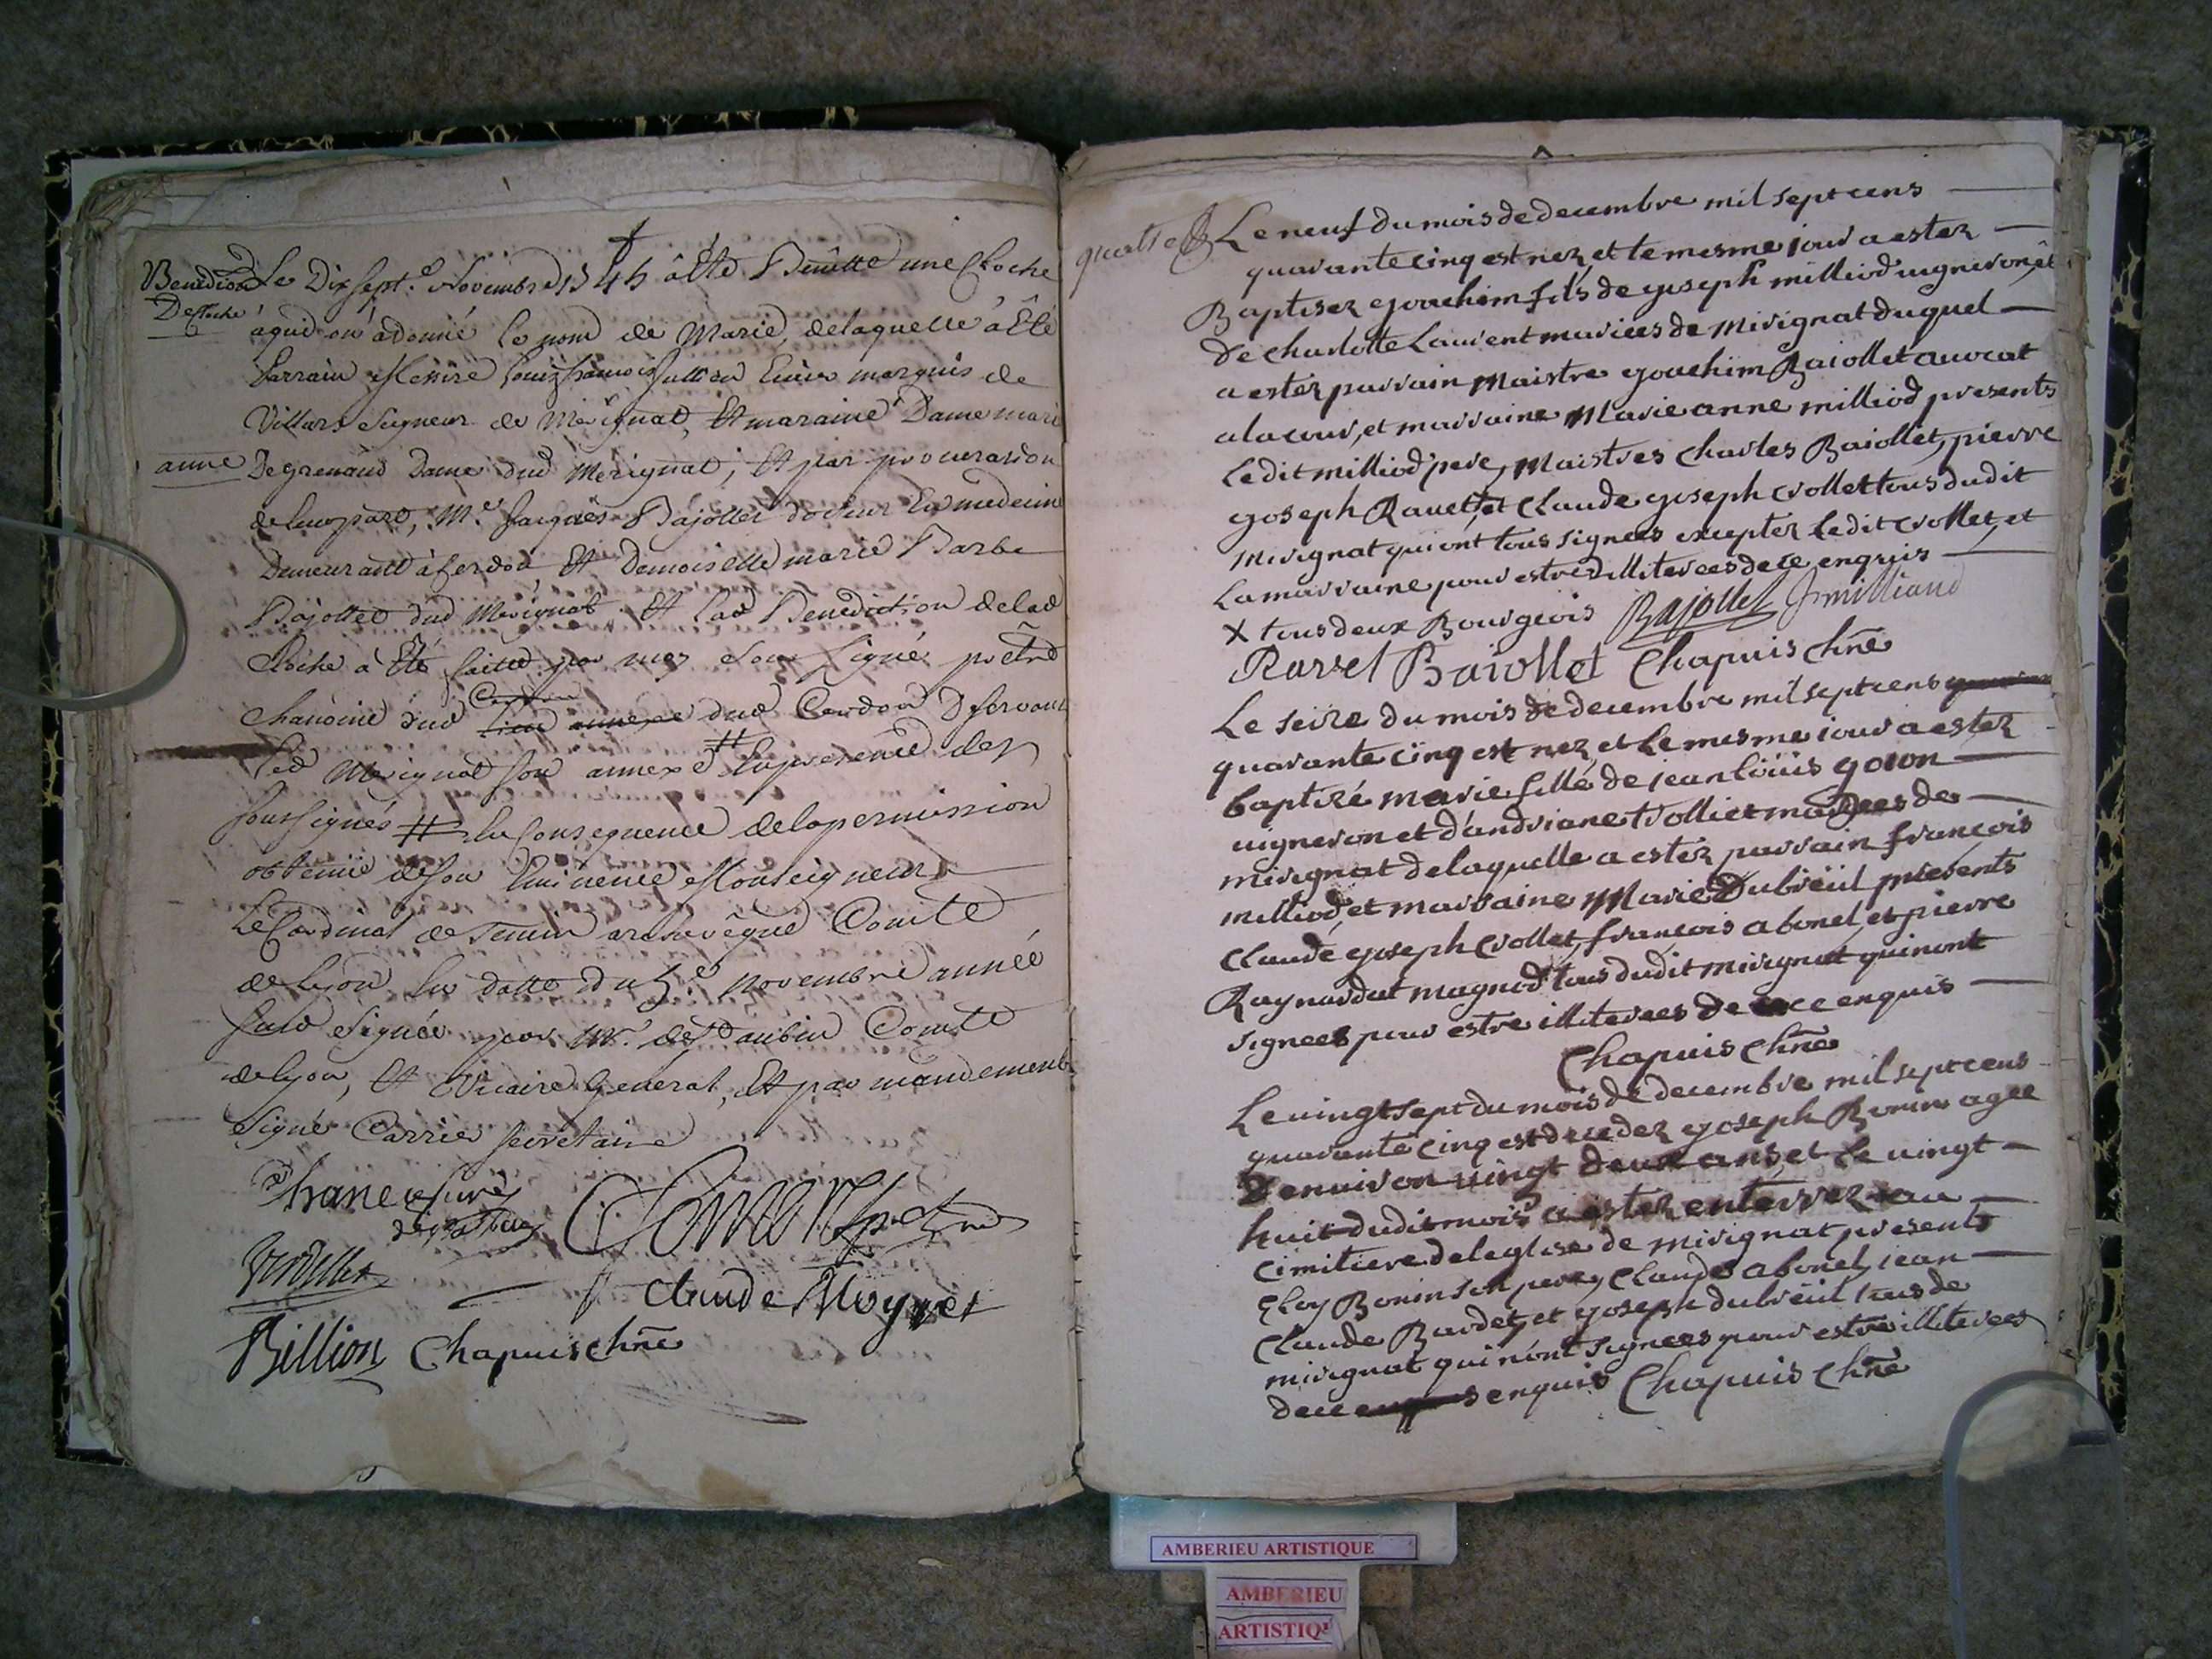 Benediction
De cloche
Le Dix sept.e Novembre 1745 â Eté Benitte une Cloche
à qui on à donné le nom de Marie, de laquelle â Eté
Parrain Messire Louis françois marquis de
Villars Seigneur de Merignat, Et maraine Dame marie
anne
De grenaud Dame dud Merignat, Et par procuration
de leur part, M.e Jacques Bajollet docteur En medecine
Demeurant à Cerdon Et demoiselle marie Barbe
Bajollet dud Merignat. Et lad Benediction de lad
Cloche à Eté faitte par moy Sous Signé prêtre
Chanoine dud Cerdon lieu annexe dud Cerdon Desservant
led Merignat son annexe En presence des
sous signés # En Consequence de la permission
obtenüe de son Eminence Monseigneur
Le Cardinal de Tencin archevêque Comte
de Lyon En datte du 5.e novembre année
Susd Signée par Mr. de St aubin Comte
de Lyon, Et Vicaire General, Et par mandement
Signé Carrier Secretaire
Claude Moyret
Billion Chapuis chne
quatre
Le neuf du mois de decembre mil sept cens
quarante cinq est nez, et le mesme jour a ester
Baptisez gouchim fils de joseph milliod vigneron, et
de charlotte Laurent mariées de mirignat duquel
a ester parrain Maistre gouchim Baiollet avocat
a la cour, et marraine Marie anne milliod presents
Ledit milliod pere, Maistres Charles Baiollet, pierre
goseph Ravet, et Claude goseph Crollet tous dudit
mirignat qui ont tous signees excepter Ledit Crollet, et
La marraine pour estre illiterees de ce enquis
X tous deux Bourgeois Bajollet J milliand
Ravet Baiollet Chapuis chne
Le seize du mois de decembre mil sept cens
quarante cinq est nez, et le mesme jour a ester
baptizé marie fille de jean loüis goion
vigneron et d'andriane trolliet mariees de
mirignat de laquelle a ester parrain francois
milliod, et marraine Marie Dubreüil presents
Claude goseph Crollet, francois abonel, et pierre
Raynard at magnod tous dudit mirignat qui n'ont
signees pour estre illiterees de ce enquis
Chapuis chne
Le vingt sept du mois de decembre mil sept cens
quarante cinq est decedez goseph Bonin agee
d'environ vingt deux ans, et le vingt
huit dudit mois a ester enterrez au
cimitiere de leglise de mirignat presents
Eloy Bonin son pere, Claude abonel, jean
Claude Bardet, et goseph dubreüil tous de
mirignat qui n'ont signees pour estre illiterees
de ce enquis Chapuis chne
AMBERIEU ARTISTIQUE
AMBERIEU
ARTISTIQ